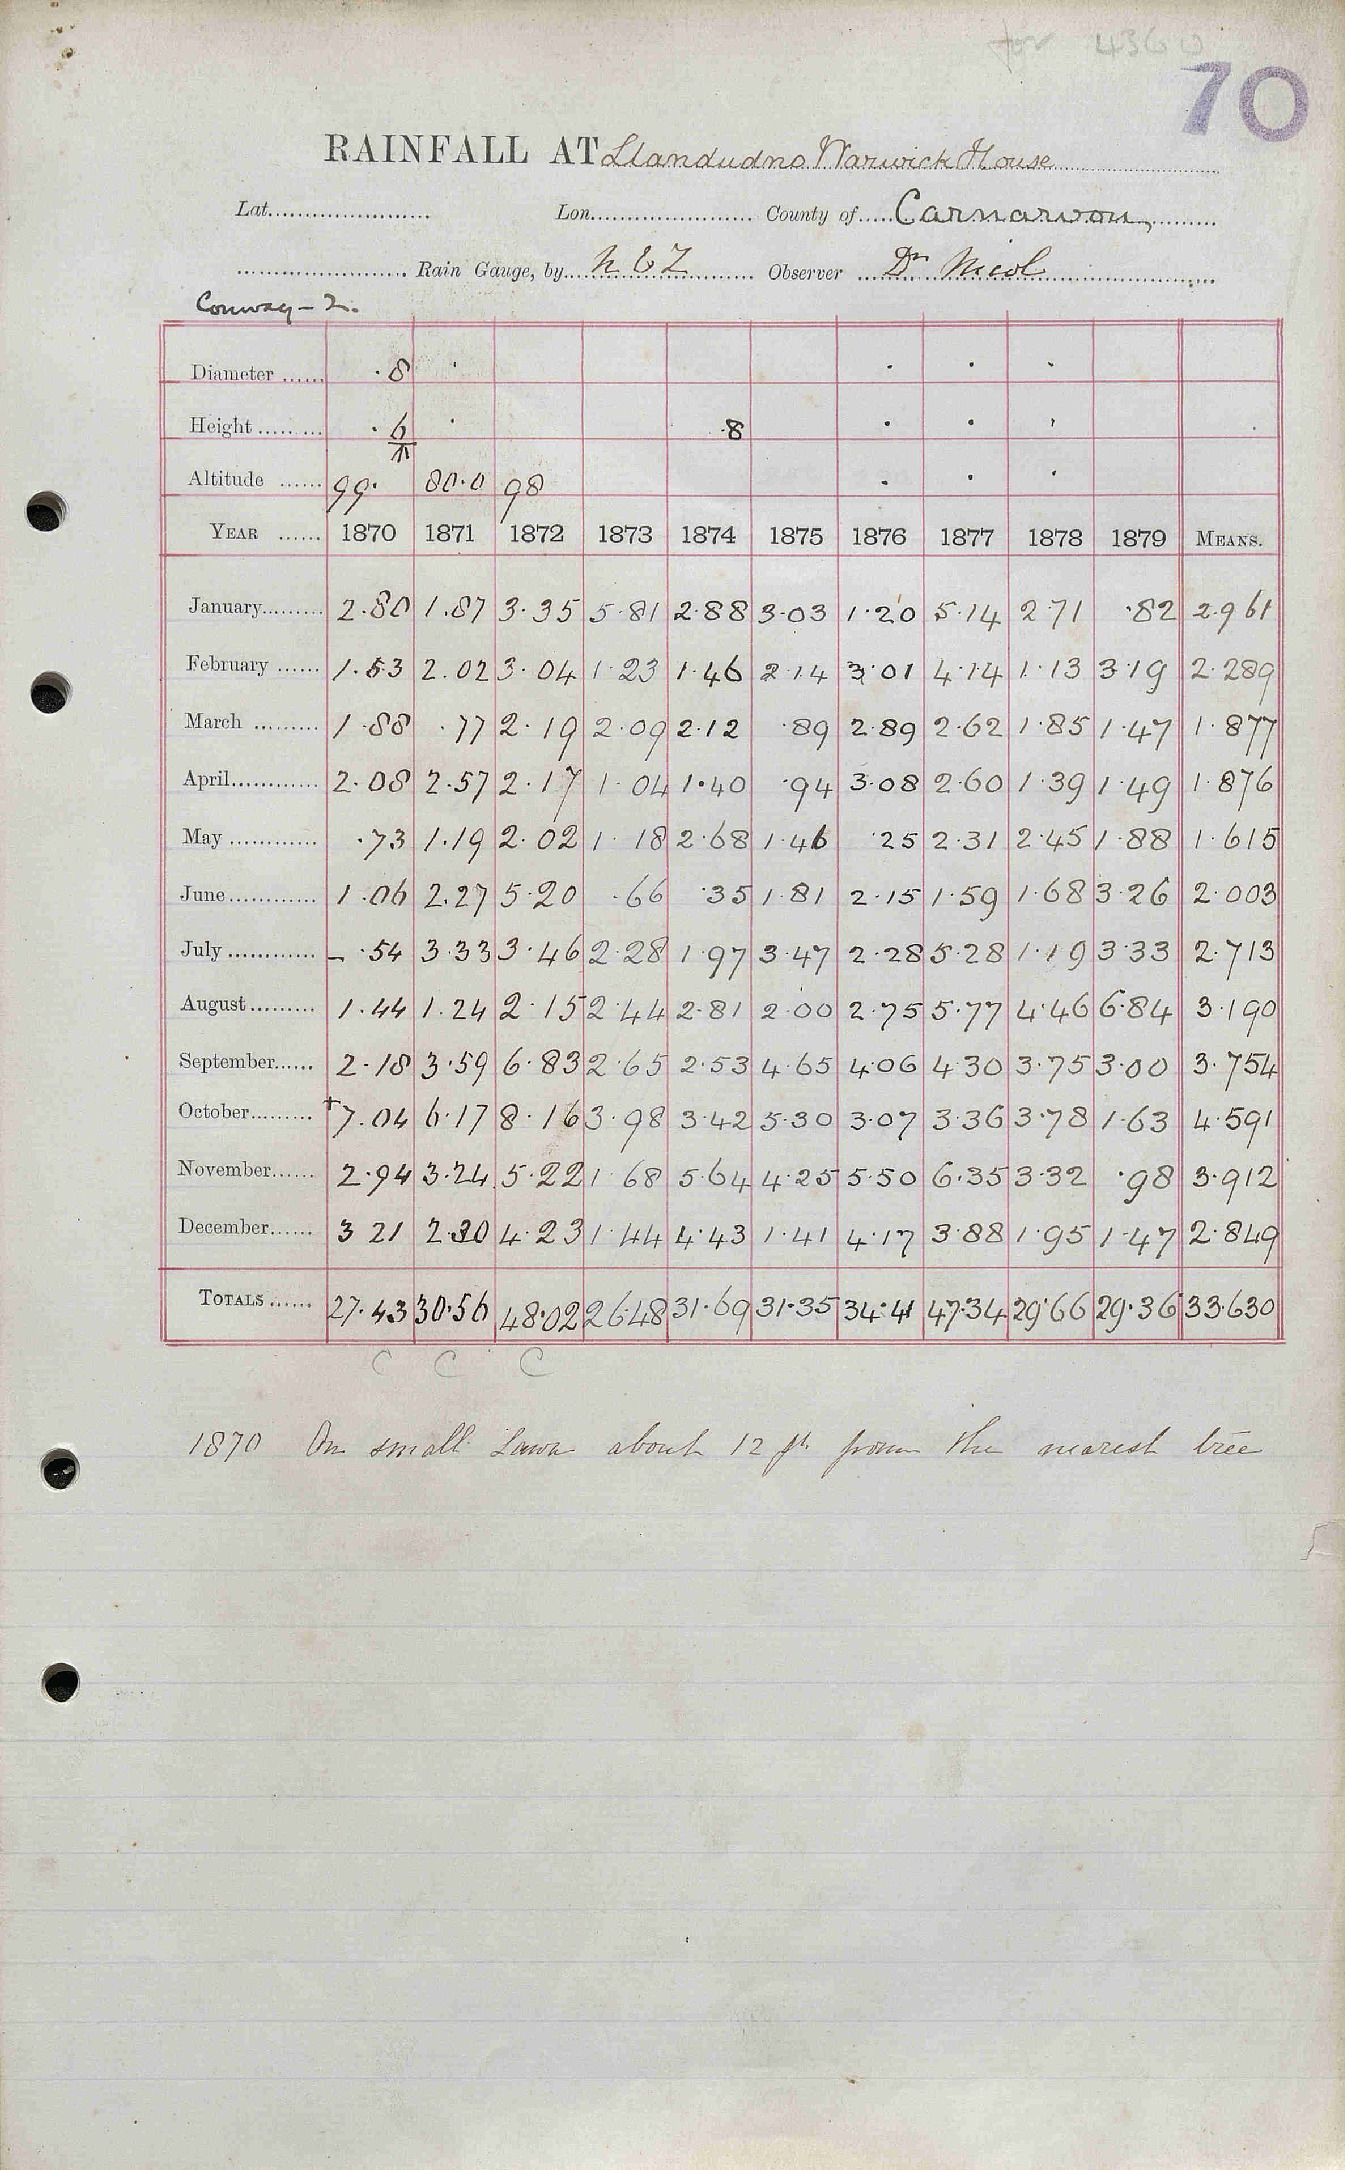 70
RAINFALL AT Llandudno Warwick House
Lat. Lon. County of Carnarvon,
Rain Gauge, by N & Z Observer Dr Nicol
Conway - 2.
Diameter ...... ·8 · · · ·
Height ...... ·6 · ·8 · · ·
Altitude ...... 99· 80·0 98 · · ·
YEAR ...... 1870 1871 1872 1873 1874 1875 1876 1877 1878 1879 MEANS.
January 2·80 1·87 3·35 5·81 2·88 3·03 1·20 5·14 2·71 ·82 2·961
February 1·53 2·02 3·04 1·23 1·46 2·14 3·01 4·14 1·13 3·19 2·289
March 1·88 ·77 2·19 2·09 2·12 ·89 2·89 2·62 1·85 1·47 1·877
April 2·08 2·57 2·17 1·04 1·40 ·94 3·08 2·60 1·39 1·49 1·876
May ·73 1·19 2·02 1·18 2·68 1·46 ·25 2·31 2·45 1·88 1·615
June 1·06 2·27 5·20 ·66 ·35 1·81 2·15 1·59 1·68 3·26 2·003
July – ·54 3·33 3·46 2·28 1·97 3·47 2·28 5·28 1·19 3·33 2·713
August 1·44 1·24 2·15 2·44 2·81 2·00 2·75 5·77 4·46 6·84 3·190
September 2·18 3·59 6·83 2·65 2·53 4·65 4·06 4·30 3·75 3·00 3·754
October +7·04 6·17 8·16 3·98 3·42 5·30 3·07 3·36 3·78 1·63 4·591
November 2·94 3·24 5·22 1·68 5·64 4·25 5·50 6·35 3·32 ·98 3·912
December 3 21 2·30 4·23 1·44 4·43 1·41 4·17 3·88 1·95 1·47 2·849
TOTALS 27·43 30·56 48·02 26·48 31·69 31·35 34·41 47·34 29·66 29·36 33·630
C C C
1870 On small Lawn about 12 ft from the nearest tree